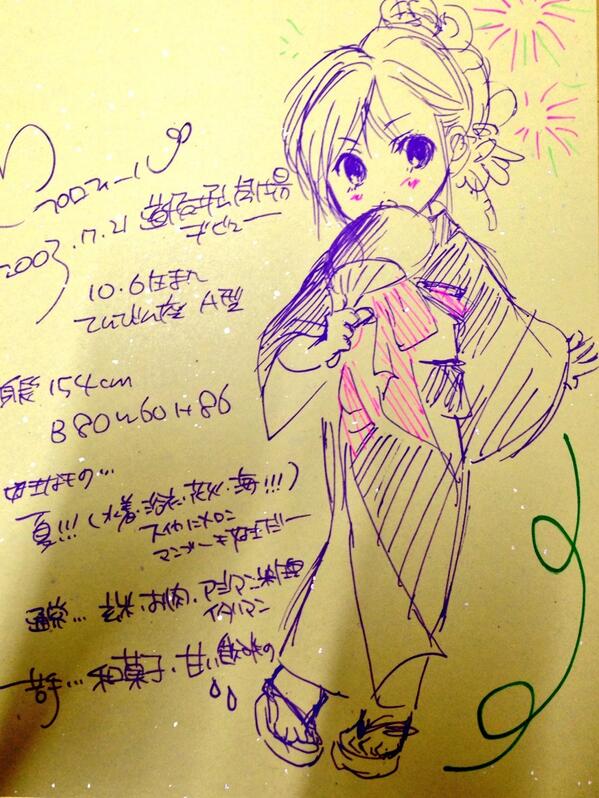 プロフィール
2003.7.21 新宿 劇場
デビュー
10.6生まれ
てんびん座 A型
身長 154cm
B80W60H86
好きなもの…
夏!!!(水着・浴衣・花火・海!!!)
スイカにメロン
マンゴーも好きだー
通常… 玄米・お肉・アジアン料理
イタリアン
苦手… 和菓子・甘い飲みもの